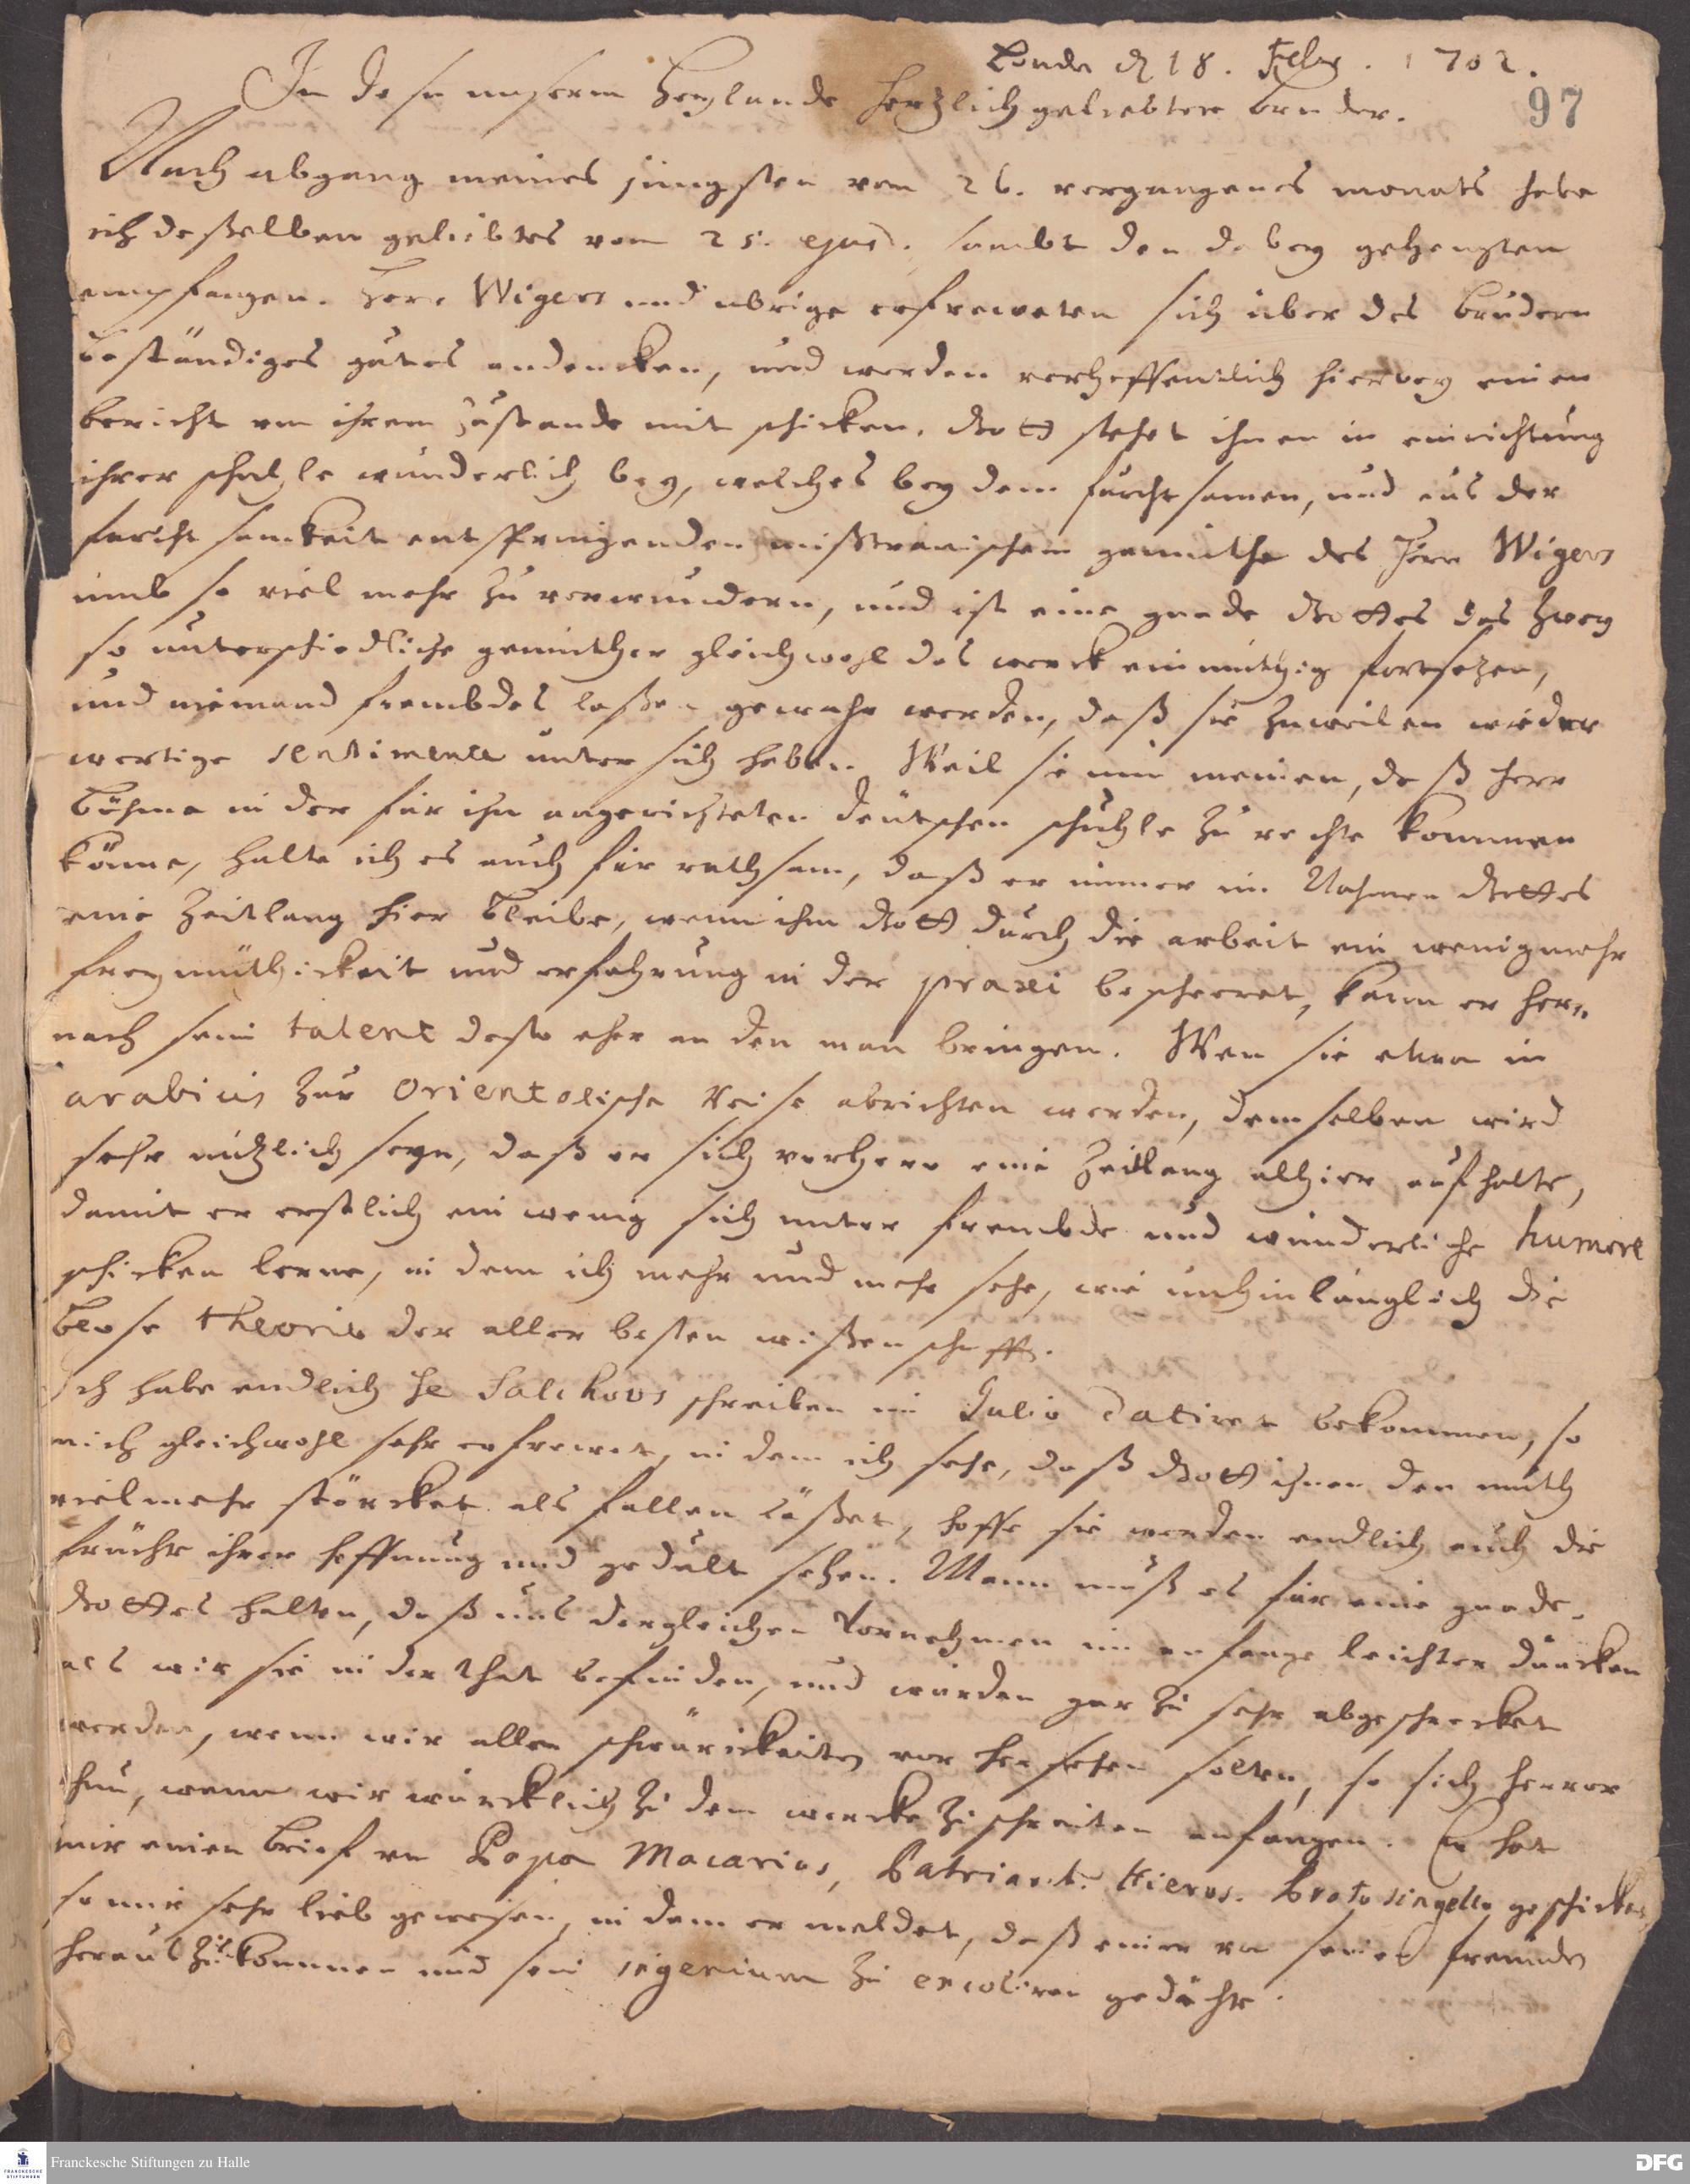 Londen d 18. Febr. 1702.
97
In Jesu unserm Heylande hertzlich geliebter bruder.
Nach abgang meines jüngsten vom 26. vergangenes monats habe
ich deßelben geliebtes vom 25. ejusd. sambt den dabey gehengten
empfangen. Herr Wigers und übrige erfreweten sich über des bruders
beständiges gutes andencken, und werden verhoffentlich hierbey einen
bericht von ihrem zustande mit schicken. Gott stehet ihnen in einrichtung
ihrer schuhle wunderlich bey, welches bey dem furchtsamen, und aus der
furchtsamkeit entspringenden mißtrauischem gemüthe des Herr Wigers
umb so viel mehr zu verwundern, und ist eine gnade Gottes das zwey
so unterschiedliche gemüther gleichwohl das werck einmüthig fortsetzen,
und niemand frembdes laßen gewahr werden, daß sie zuweilen wieder
wertige sentimente unter sich haben. Weil sie nun meinen, daß Herr
Böhme in der für ihn angerichteten deutschen schuhle zu rechte kommen
könne, halte ich es auch für rathsam, daß er immer im Nahmen Gottes
eine zeitlang hier bleibe, wenn ihm Gott durch die arbeit ein wenig mehr
freymüthickeit und erfahrung in der praxi bescheret, kann er her-
nach sein talent desto eher an den man bringen. Wen sie etwa in
arabicis zur Orientalische Reise abrichten werden, demselben wird
sehr nützlich seyn, daß er sich vorhero eine zeitlang allhier aufhalte,
damit er erstlich ein wenig sich unter frembde und wunderliche humore
schicken lerne, in dem ich mehr und mehr sehe, wie unhinlänglich die
blose theorie der aller besten wißenschafft.
Ich habe endlich He Salchovs schreiben im Julio datiret bekommen, so
mich gleichwohl sehr erfrewet, in dem ich sehe, daß Gott ihnen den muth
vielmehr stärcket als fallen läßet, hoffe sie werden endlich auch die
früchte ihrer hoffnung und gedult sehen. Mann muß es für eine gnade
Gottes halten, daß uns dergleichen Vornehmen im anfange leichter düncken
als wir sie in der that befinden, und würden gar zu sehr abgeschrecket
werden, wenn wir allen schwürickeiten vor her sehen solten, so sich hervor
thun, wenn wir würcklich zu dem wercke zu schreiten anfangen. Er hat
mir einen brief von Papa Macarios, Patriarch. Hieros. Protosingello geschicket
so mir sehr lieb gewesen, in dem er meldet, daß einer von seinen freunden
heraus zu kommen und sein ingenium zu excoliren gedächte.
Franckesche Stiftungen zu Halle
DFG